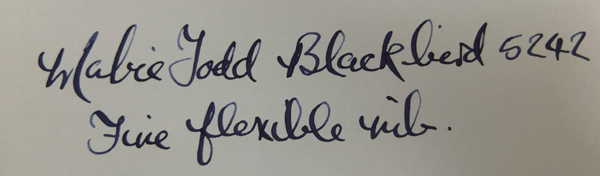 Mabie Todd Blackbird 5242
Fine flexible nib.